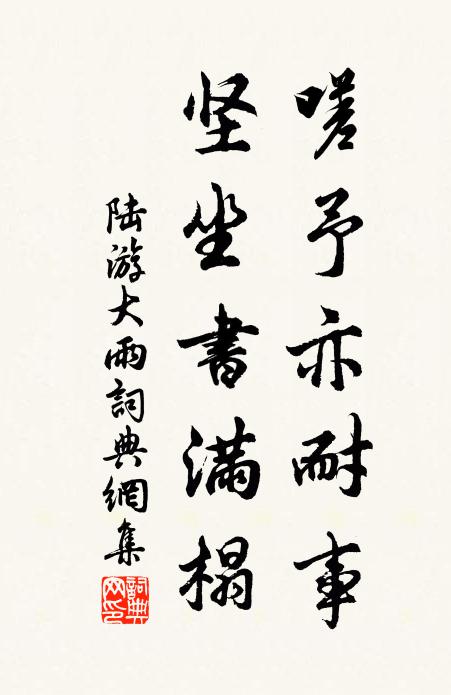 嗟予亦耐事
坚坐書满榻
陆游大雨詞典網集
詞典网印